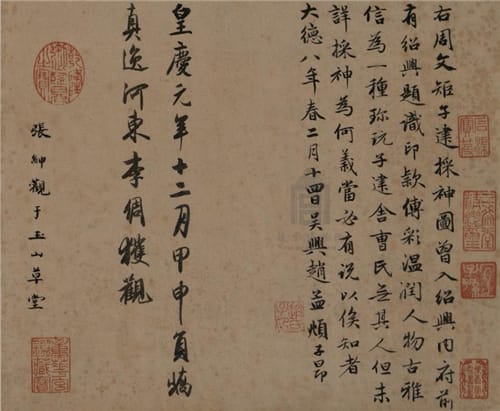 右周文矩子建採神圖曾入紹興内府前
有紹興題識印款傅彩温潤人物古雅
信為一種珎玩子建舍曹氏無其人但未
詳採神為何義當必有説以俟知者
大德八年春二月十四日吴興趙孟頫子昂
皇慶元年十二月甲申貟嶠
真逸河東李倜獲觀
張紳觀于玉山草堂